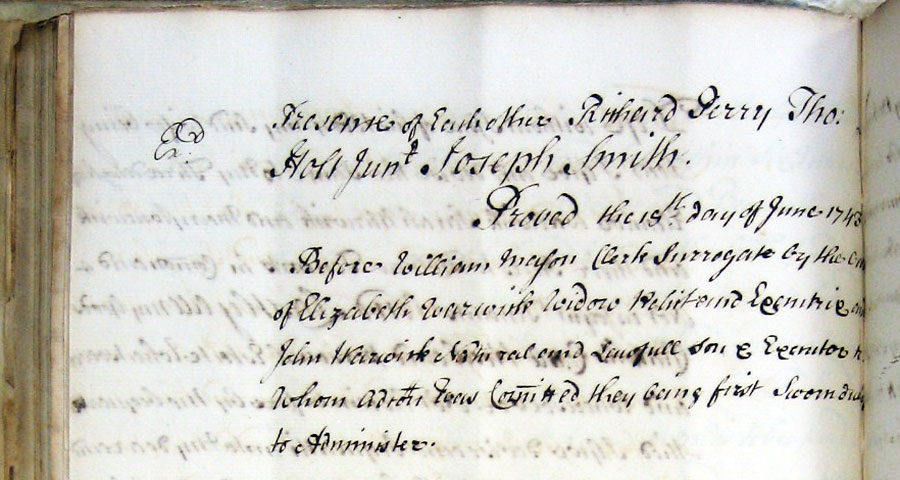 Exd Presence of Each other Richard Perry Tho:
Holt Junr Joseph Smith.
Proved the 18th day of June 174
Before William Mason Clerk Surrogate by the
of Elizabeth Warwick Widow Relict and Executrix and
John Warwick Natural and Lawfull son & Executor
Whom admōn Was Com̄itted they being first Sworn duly
to Administer.